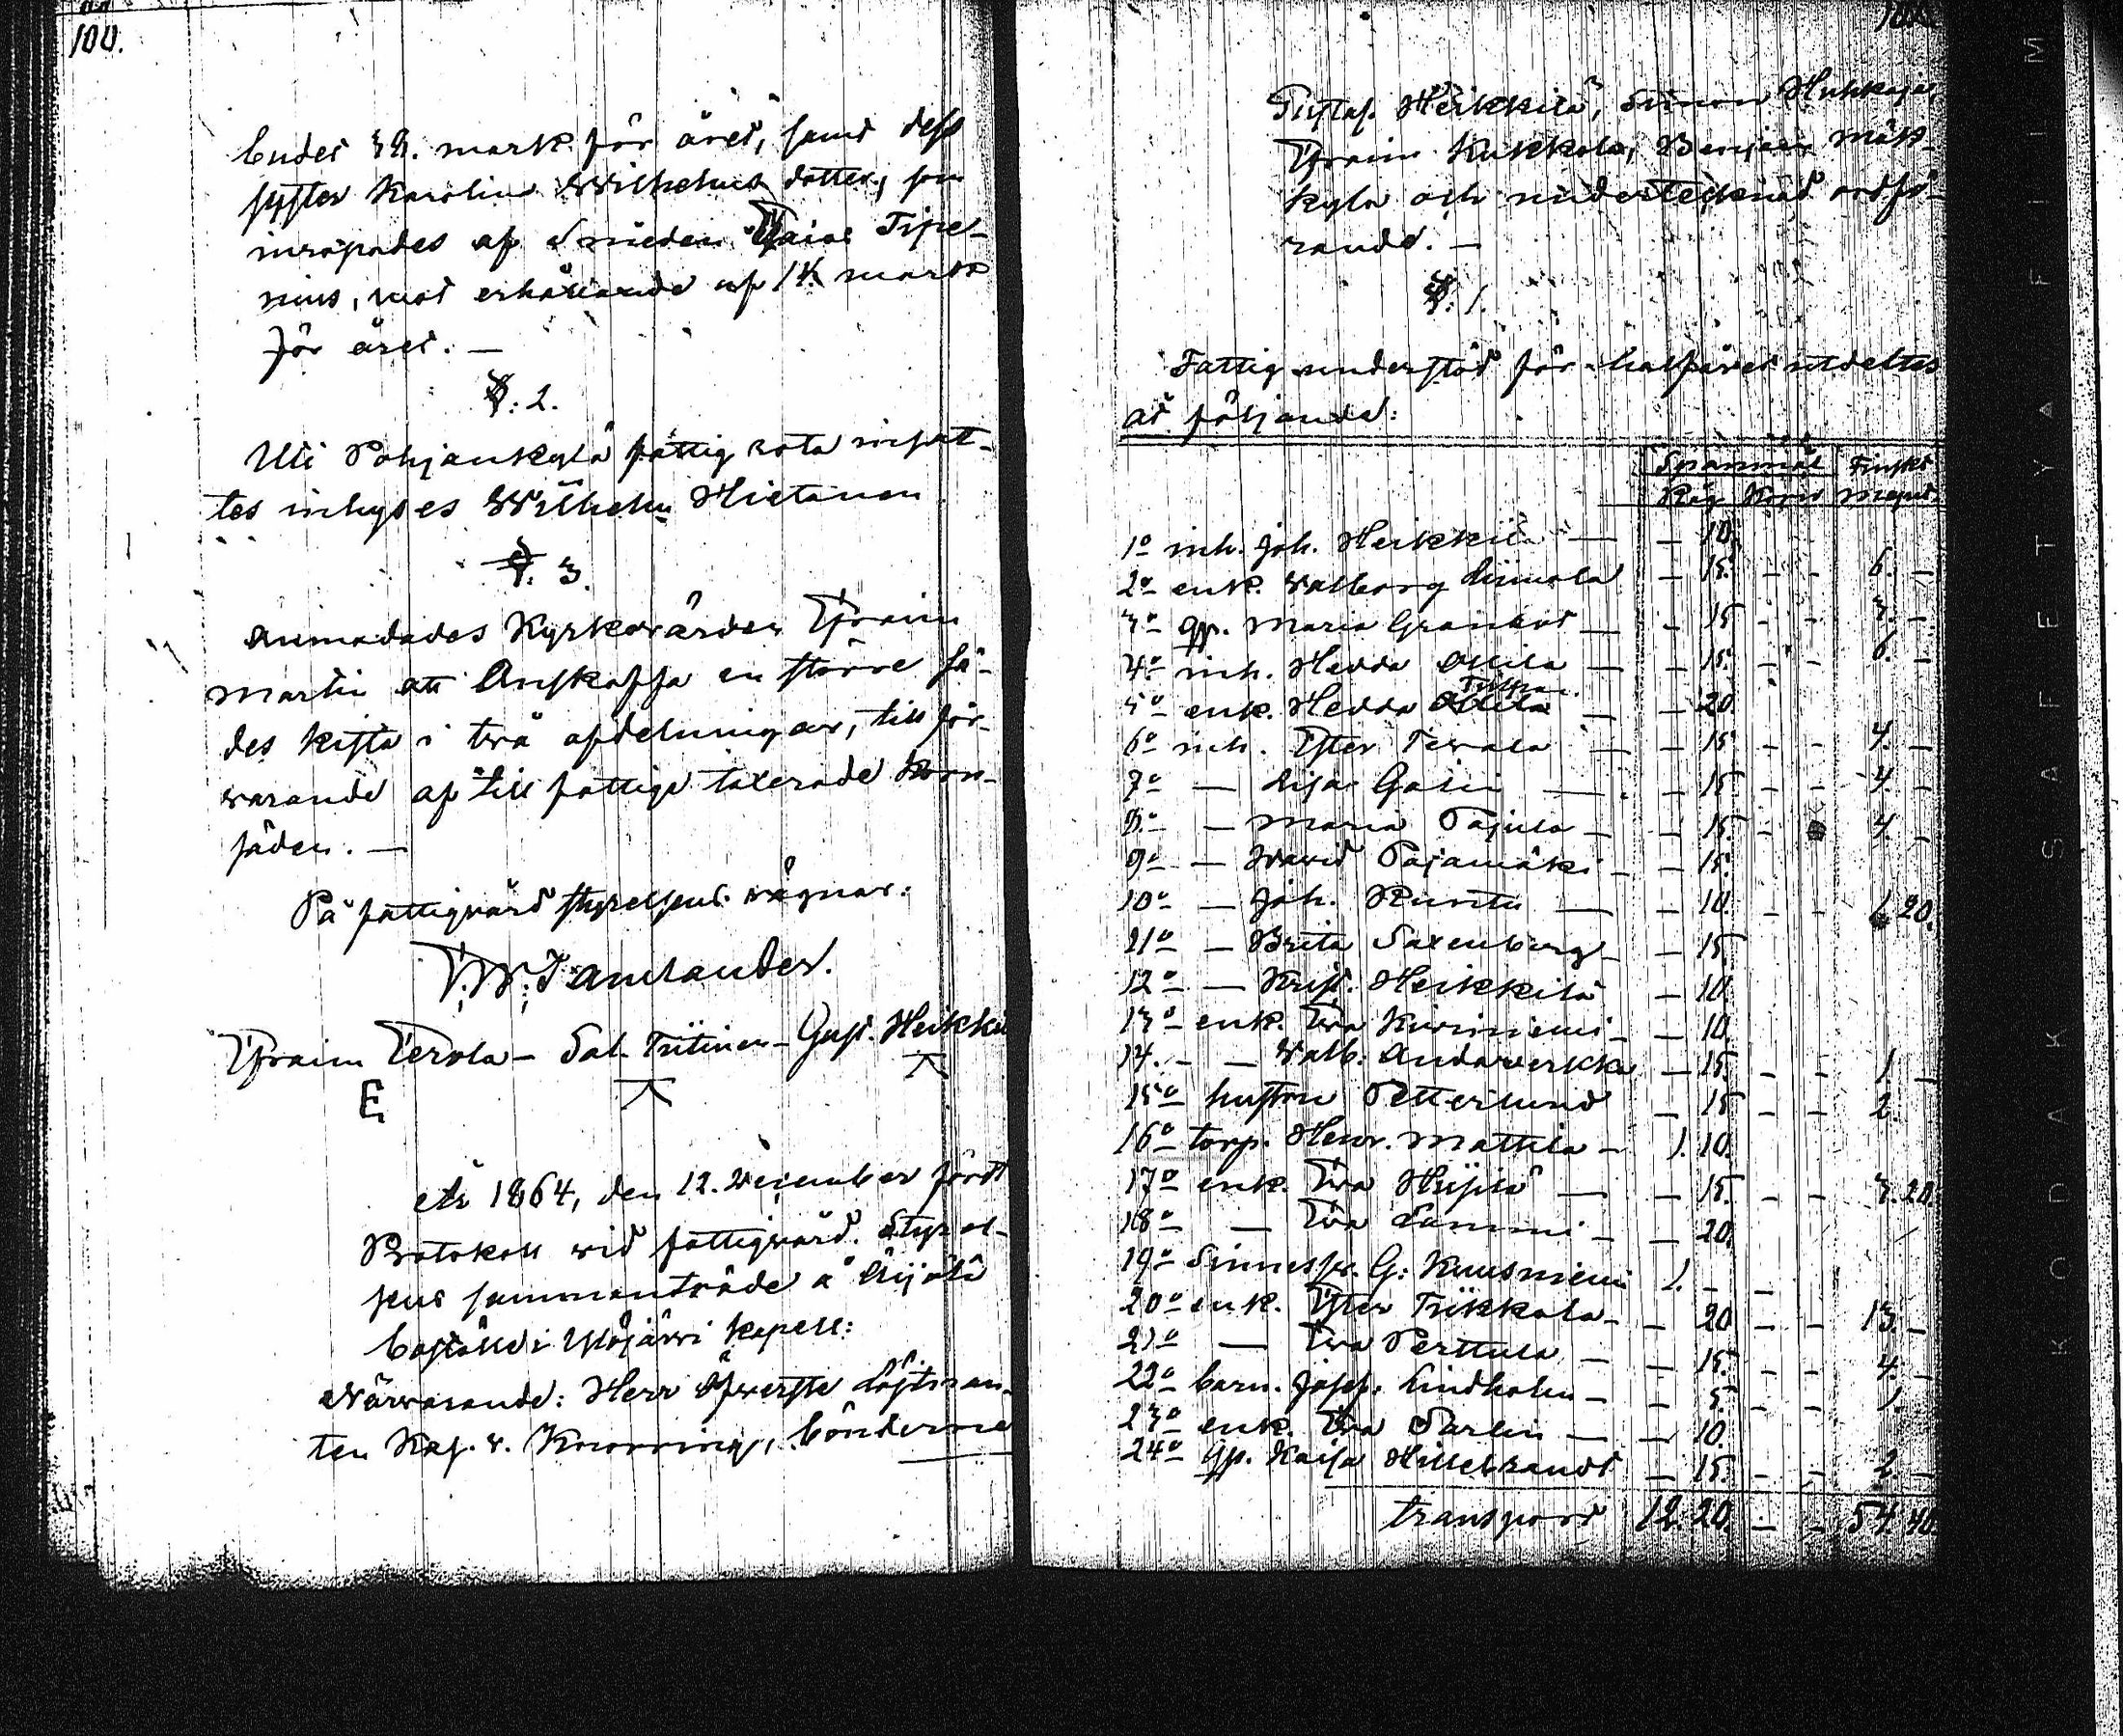 100.
mark för året, samt dess
syster Karolina Wilhelms dotter, som
inropades af Smeden
nius, mot erhållande af 14 mark
för året. —
§. 2.
Uti Pohjankylä fattig rota insat-
tes inhyses Wilhelm Hietanen
§. 3.
Anmodades Kyrkovärden Efraim
Martin att Anskaffa en större sä-
des kista i två afdelningar, till för-
warande af till fattiga taxerade korn-
säden. —
På fattigvård styrelsens wägnar:
F. W. Tamlander.
Efraim Perola — Sal. Tiitinen — Gust. Heikki
E
År 1864, den 12. December fördt
Protokoll wid fattigvård. Styrel-
sens sammanträde å
boställe i Ylöjärvi kapell:
Närvarande: Herr Öfwerste Löjtnan-
ten Kaj. v. Knorring, bönderne
Gustaf Heikkilä, Simon Huhkaja,
Efraim Kukkola, Benjam Mäk-
kylä och undertecknad ordfö-
rande. —
§. 1.
Fattig understöd för halfåret utdeltes
åt följande:
Spannmål Finskt
Råg Korn Mynt.
1o inh. Joh. Heikkilä — — 10.
2o enk. Walborg Liimola — 15. — — 6. —
3o gp. Maria Granköt — — 15 — — 3. —
4o inh. Hedda Ollila — — 15. — — 6. —
5o enk. Hedda — — 20.
6o inh. Ester Terala — — 15 — — 4. —
7o — Lisa Gasin — — 15 — — 4. —
8o — Maria Pajula — — 15 — — 4. —
9o — David Pajamäki — — 15.
10o — Joh. Runtu — — 10. — — 6 20.
11o — Brita Saxenberg — — 15
12o — Krist. Heikkilä — 10
13o enk. Eva Kurinniemi — — 10.
14. — — Walb. Andawerkka — 15. — — 1. —
15o hustru Petterlund — 15 — — 2.
16o torp. Henr. Mattila — 1. 10.
17o enk. Eva — — 15. — — 3. 20.
18o — Eva Lammi — — 20.
19o Sinnessv. G: Kuusniemi 1. — —
20o enk. Ester Trikkala — — 20 — — 13. —
21o — Eva Perttula — — 15. — — 4. —
22o barn. Josef. Lindholm — — 5. — — 1.
23o enk. Eva Sarlin — — 10.
24o gp. Kaisa Hillebrandt — 15. — — 2. —
transport 12 20. — — 54 40
KODAK SAFETY FILM